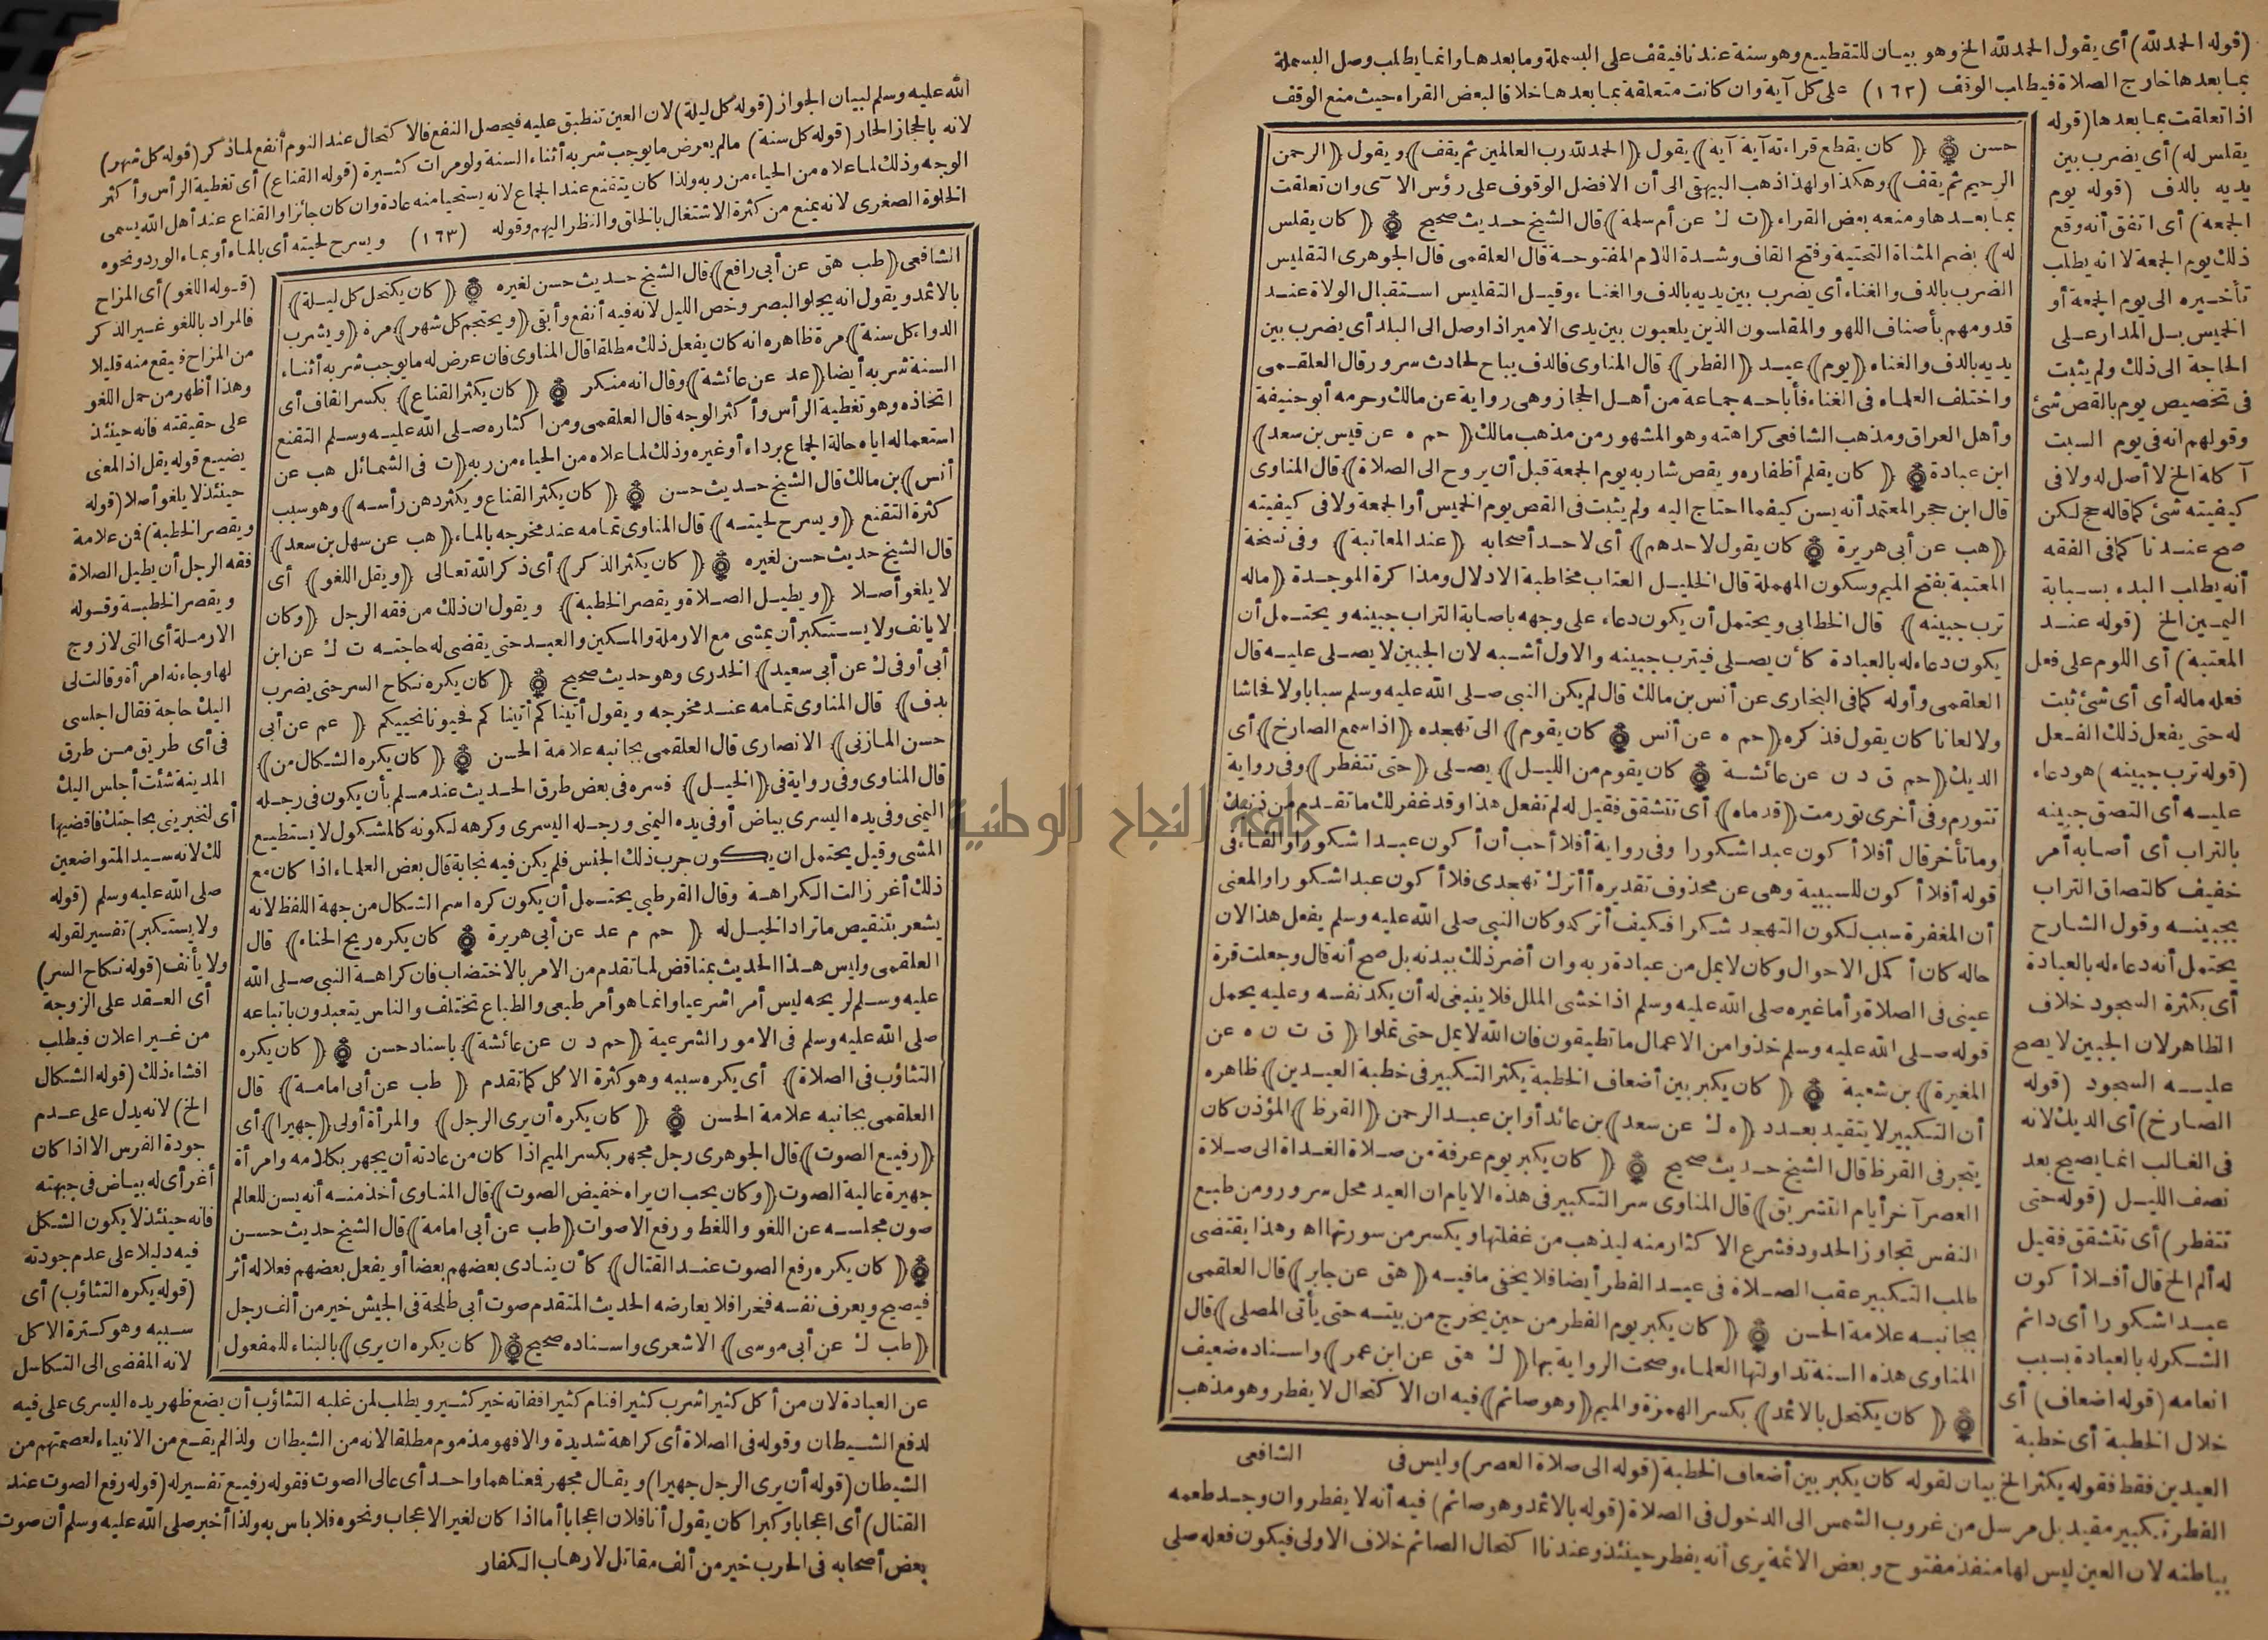 (قوله الحمد لله) أى يقول الحمد لله الخ وهو بيان للتقطيع وهو سنة عندنا فيقف على البسملة وما بعدها وانما يطلب وصل البسملة
بما بعدها خارج الصلاة فيطلب الوقف (١٦٢) على كل آية وان كانت متعلقة بما بعدها خلافا لبعض القراء حيث منع الوقف
اذا تعلقت بما بعدها (قوله
يقلس له) أى يضرب بين
يديه بالدف (قوله يوم
الجمعة) أى اتفق أنه وقع
ذلك يوم الجمعة لا انه يطلب
تأخيره الى يوم الجمعة أو
الخميس بل المدار على
الحاجة الى ذلك ولم يثبت
فى تخصيص يوم بالقص شئ
وقولهم انه فى يوم السبت
آكلة الخ لا أصل له ولا فى
كيفيته شئ كما قاله حج لكن
صح عندنا كما فى الفقه
أنه يطلب البدء بسبابة
اليمين الخ (قوله عند
المعتبة) أى اللوم على فعل
فعله ماله أى أى شئ ثبت
له حتى يفعل ذلك الفعل
(قوله ترب جبينه) هو دعاء
عليه أى التصق جبينه
بالتراب أى أصابه أمر
خفيف كالتصاق التراب
بجبينه وقول الشارح
يحتمل أنه دعاء له بالعبادة
أى بكثرة السجود خلاف
الظاهر لان الجبين لا يصح
عليه السجود (قوله
الصارخ) أى الديك لانه
فى الغالب انما يصيح بعد
نصف الليل (قوله حتى
تتفطر) أى تتشقق فقيل
له ألم الخ قال أفلا أكون
عبدا شكورا أى دائم
الشكر له بالعبادة بسبب
انعامه (قوله اضعاف) أى
خلال الخطبة أى خطبة
حسن ۞ (كان يقطع قراءته آية آية) يقول (الحمد لله رب العالمين ثم يقف) ويقول (الرحمن
الرحيم ثم يقف) وهكذا ولهذا ذهب البيهقى الى أن الافضل الوقوف على رؤس الآى وان تعلقت
بما بعدها ومنعه بعض القراء (ت ك عن أم سلمة) قال الشيخ حديث صحيح ۞ (كان يقلس
له) بضم المثناة التحتية وفتح القاف وشدة اللام المفتوحة قال العلقمى قال الجوهرى التقليس
الضرب بالدف والغناء أى يضرب بين يديه بالدف والغناء وقيل التقليس استقبال الولاة عند
قدومهم بأصناف اللهو والمقلسون الذين يلعبون بين يدى الامير اذا وصل الى البلد أى يضرب بين
يديه بالدف والغناء (يوم) عيد (الفطر) قال المناوى فالدف يباح لحادث سرور قال العلقمى
واختلف العلماء فى الغناء فأباحه جماعة من أهل الحجاز وهى رواية عن مالك وحرمه أبو حنيفة
وأهل العراق ومذهب الشافعى كراهته وهو المشهور من مذهب مالك (حم ه عن قيس بن سعد)
ابن عبادة ۞ (كان يقلم أظفاره ويقص شاربه يوم الجمعة قبل أن يروح الى الصلاة) قال المناوى
قال ابن حجر المعتمد أنه يسن كيفما احتاج اليه ولم يثبت فى القص يوم الخميس أو الجمعة ولا فى كيفيته
(هب عن أبى هريرة ۞ كان يقول لاحدهم) أى لاحد أصحابه (عند المعاتبة) وفى نسخة
المعتبة بفتح الميم وسكون المهملة قال الخليل العتاب مخاطبة الادلال ومذاكرة الموجدة (ماله
ترب جبينه) قال الخطابى ويحتمل أن يكون دعاء على وجهه باصابة التراب جبينه ويحتمل أن
يكون دعاء له بالعبادة كأن يصلى فيترب جبينه والاول أشبه لان الجبين لا يصلى عليه قال
العلقمى وأوله كما فى البخارى عن أنس بن مالك قال لم يكن النبى صلى الله عليه وسلم سبابا ولا فحاشا
ولا لعانا كان يقول فذكره (حم ه عن أنس ۞ كان يقوم) الى تهجده (اذا سمع الصارخ) أى
الديك (حم ق د ن عن عائشة ۞ كان يقوم من الليل) يصلى (حتى تتفطر) وفى رواية
تتورم وفى أخرى تورمت (قدماه) أى تتشقق فقيل له لم تفعل هذا وقد غفر لك ما تقدم من ذنبك
وما تأخر قال أفلا أكون عبدا شكورا وفى رواية أفلا أحب أن أكون عبدا شكورا والفاء فى
قوله أفلا أكون للسببية وهى عن محذوف تقديره أأترك تهجدى فلا أكون عبدا شكورا والمعنى
أن المغفرة سبب لكون التهجد شكرا فكيف أتركه وكان النبى صلى الله عليه وسلم يفعل هذا لان
حاله كان أكمل الاحوال وكان لا يمل من عبادة ربه وان أضر ذلك ببدنه بل صح أنه قال وجعلت قرة
عينى فى الصلاة وأما غيره صلى الله عليه وسلم اذا خشى الملل فلا ينبغى له أن يكد نفسه وعليه يحمل
قوله صلى الله عليه وسلم خذوا من الاعمال ما تطيقون فان الله لا يمل حتى تملوا (ق ت ن ه عن
المغيرة) بن شعبة ۞ (كان يكبر بين أضعاف الخطبة يكثر التكبير فى خطبة العيدين) ظاهره
أن التكبير لا يتقيد بعدد (ه ك عن سعد) بن عائذ أو ابن عبد الرحمن (القرظ) المؤذن كان
يتجر فى القرظ قال الشيخ حديث صحيح ۞ (كان يكبر يوم عرفة من صلاة الغداة الى صلاة
العصر آخر أيام التشريق) قال المناوى سر التكبير فى هذه الايام ان العيد محل سرور ومن طبع
النفس تجاوز الحدود فشرع الاكثار منه ليذهب من غفلتها ويكسر من سورتها اه وهذا يقتضى
طلب التكبير عقب الصلاة فى عيد الفطر أيضا فلا يخفى ما فيه (هق عن جابر) قال العلقمى
بجانبه علامة الحسن ۞ (كان يكبر يوم الفطر من حين يخرج من بيته حتى يأتى المصلى) قال
المناوى هذه السنة تداولتها العلماء وصحت الرواية بها (ك هق عن ابن عمر) واسناده ضعيف
۞ (كان يكتحل بالاثمد) بكسر الهمزة والميم (وهو صائم) فيه ان الاكتحال لا يفطر وهو مذهب
الشافعى
العيدين فقط فقوله يكثر الخ بيان لقوله كان يكبر بين أضعاف الخطبة (قوله الى صلاة العصر) وليس فى
الفطر تكبير مقيد بل مرسل من غروب الشمس الى الدخول فى الصلاة (قوله بالاثمد وهو صائم) فيه أنه لا يفطر وان وجد طعمه
بباطنه لان العين ليس لها منفذ مفتوح وبعض الائمة يرى أنه يفطر حينئذ وعندنا اكتحال الصائم خلاف الاولى فيكون فعله صلى
الله عليه وسلم لبيان الجواز (قوله كل ليلة) لان العين تنطبق عليه فيحصل النفع فالاكتحال عند النوم أنفع لما ذكر (قوله كل شهر)
لانه بالحجاز الحار (قوله كل سنة) مالم يعرض ما يوجب شربه أثناء السنة ولو مرات كثيرة (قوله القناع) أى تغطية الرأس وأكثر
الوجه وذلك لما علاه من الحياء من ربه ولذا كان يتقنع عند الجماع لانه يستحيا منه عادة وان كان جائزا والقناع عند أهل الله يسمى
الخلوة الصغرى لانه يمنع من كثرة الاشتغال بالخلق والنظر اليهم وقوله (١٦٣) ويسرح لحيته أى بالماء أو بماء الورد ونحوه
الشافعى (طب هق عن أبى رافع) قال الشيخ حديث حسن لغيره ۞ (كان يكتحل كل ليلة)
بالاثمد ويقول انه يجلو البصر وخص الليل لانه فيه أنفع وأبقى (ويحتجم كل شهر) مرة (ويشرب
الدواء كل سنة) مرة ظاهره انه كان يفعل ذلك مطلقا قال المناوى فان عرض له ما يوجب شربه أثناء
السنة شربه أيضا (عد عن عائشة) وقال انه منكر ۞ (كان يكثر القناع) بكسر القاف أى
اتخاذه وهو تغطية الرأس وأكثر الوجه قال العلقمى ومن اكثاره صلى الله عليه وسلم التقنع
استعماله اياه حالة الجماع برداء أو غيره وذلك لما علاه من الحياء من ربه (ت فى الشمائل هب عن
أنس) بن مالك قال الشيخ حديث حسن ۞ (كان يكثر القناع ويكثر دهن رأسه) وهو سبب
كثرة التقنع (ويسرح لحيته) قال المناوى تمامه عند مخرجه بالماء (هب عن سهل بن سعد)
قال الشيخ حديث حسن لغيره ۞ (كان يكثر الذكر) أى ذكر الله تعالى (ويقل اللغو) أى
لا يلغو أصلا (ويطيل الصلاة ويقصر الخطبة) ويقول ان ذلك من فقه الرجل (وكان
لا يانف ولا يستكبر أن يمشى مع الارملة والمسكين والعبد حتى يقضى له حاجته ت ك عن ابن
أبى أوفى ك عن أبى سعيد) الخدرى وهو حديث صحيح ۞ (كان يكره نكاح السر حتى يضرب
بدف) قال المناوى تمامه عند مخرجه ويقول أتيناكم أتيناكم فحيونا نحييكم (عم عن أبى
حسن المازنى) الانصارى قال العلقمى بجانبه علامة الحسن ۞ (كان يكره الشكال من)
قال المناوى وفى رواية فى (الخيل) فسره فى بعض طرق الحديث عند مسلم بأن يكون فى رجله
اليمنى وفى يده اليسرى بياض أو فى يده اليمنى ورجله اليسرى وكرهه لكونه كالمشكول لا يستطيع
المشى وقيل يحتمل ان يكون جرب ذلك الجنس فلم يكن فيه نجابة قال بعض العلماء اذا كان مع
ذلك أغر زالت الكراهة وقال القرطبى يحتمل أن يكون كره اسم الشكال من جهة اللفظ لانه
يشعر بتنقيص ما تراد الخيل له (حم م عد عن أبى هريرة ۞ كان يكره ريح الحناء) قال
العلقمى وليس هذا الحديث بمناقض لما تقدم من الامر بالاختضاب فان كراهة النبى صلى الله
عليه وسلم لريحه ليس أمرا شرعيا وانما هو أمر طبعى والطباع تختلف والناس يتعبدون باتباعه
صلى الله عليه وسلم فى الامور الشرعية (حم د ن عن عائشة) باسناد حسن ۞ (كان يكره
التثاؤب فى الصلاة) أى يكره سببه وهو كثرة الاكل كما تقدم (طب عن أبى امامة) قال
العلقمى بجانبه علامة الحسن ۞ (كان يكره أن يرى الرجل) والمرأة أولى (جهيرا) أى
(رفيع الصوت) قال الجوهرى رجل مجهر بكسر الميم اذا كان من عادته أن يجهر بكلامه وامرأة
جهيرة عالية الصوت (وكان يحب ان يراه خفيض الصوت) قال المناوى أخذ منه أنه يسن للعالم
صون مجلسه عن اللغو واللغط ورفع الاصوات (طب عن أبى امامة) قال الشيخ حديث حسن
۞ (كان يكره رفع الصوت عند القتال) كأن ينادى بعضهم بعضا أو يفعل بعضهم فعلا له أثر
فيصيح ويعرف نفسه فخرا فلا يعارضه الحديث المتقدم صوت أبى طلحة فى الجيش خير من ألف رجل
(طب ك عن أبى موسى) الاشعرى واسناده صحيح ۞ (كان يكره ان يرى) بالبناء للمفعول
(قوله اللغو) أى المزاح
فالمراد باللغو غير الذكر
من المزاح فيقع منه قليلا
وهذا أظهر من حمل اللغو
على حقيقته فانه حينئذ
يضيع قوله يقل اذ المعنى
حينئذ لا يلغو أصلا (قوله
ويقصر الخطبة) فمن علامة
فقه الرجل أن يطيل الصلاة
ويقصر الخطبة وقوله
الارملة أى التى لا زوج
لها وجاءته امرأة وقالت لى
اليك حاجة فقال اجلسى
فى أى طريق من طرق
المدينة شئت أجلس اليك
أى لتخبرينى بحاجتك فاقضيها
لك لانه سيد المتواضعين
صلى الله عليه وسلم (قوله
ولا يستكبر) تفسير لقوله
ولا يأنف (قوله نكاح السر)
أى العقد على الزوجة
من غير اعلان فيطلب
افشاء ذلك (قوله الشكال
الخ) لانه يدل على عدم
جودة الفرس الا اذا كان
أغر أى له بياض فى جبهته
فانه حينئذ لا يكون الشكل
فيه دليلا على عدم جودته
(قوله يكره التثاؤب) أى
سببه وهو كثرة الاكل
لانه المفضى الى التكاسل
عن العبادة لان من أكل كثيرا شرب كثيرا فنام كثيرا ففاته خير كثير ويطلب لمن غلبه التثاؤب أن يضع ظهر يده اليسرى على فيه
لدفع الشيطان وقوله فى الصلاة أى كراهة شديدة والا فهو مذموم مطلقا لانه من الشيطان ولذا لم يقع من الانبياء لعصمتهم من
الشيطان (قوله أن يرى الرجل جهيرا) ويقال مجهر فمعناهما واحد أى عالى الصوت فقوله رفيع تفسير له (قوله رفع الصوت عند
القتال) أى اعجابا وكبرا كان يقول أنا فلان اعجابا أما اذا كان لغير الاعجاب ونحوه فلا باس به ولذا أخبر صلى الله عليه وسلم أن صوت
بعض أصحابه فى الحرب خير من ألف مقاتل لارهاب الكفار
جامعة النجاح الوطنية